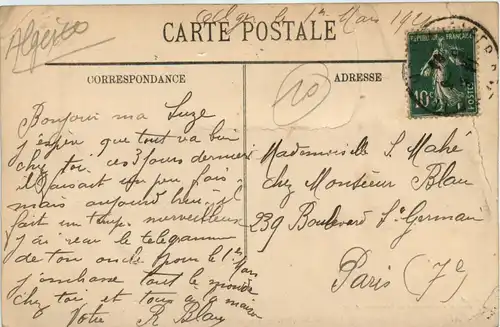 Algérie
Alger le 1er Mars 19
CARTE POSTALE
REPUBLIQUE FRANÇAISE
10c
POSTES
CORRESPONDANCE
ADRESSE
10
Bonjour ma Suze
j'espère que tout va bien
chez toi. ces 3 jours derniers
il faisait un peu frais
mais aujourd'hui il
fait un temps merveilleux
j'ai reçu le telegramme
de ton oncle pour le 1er Mars
j'embrasse tout le monde
chez toi et tous a la maison
Votre R Blau
Mademoiselle S. Mahé
chez Monsieur Blau
239 Boulevard St Germain
Paris (7e)